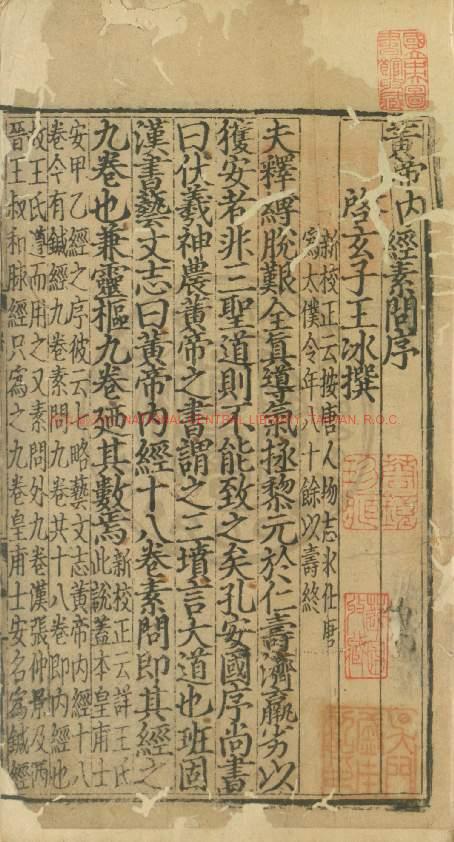 國立中央圖
書館收藏
黃帝內經素問序
啓玄子王冰撰
新校正云按唐人物志冰仕唐
為太僕令年八十餘以壽終
夫釋縛脫艱全真導氣拯黎元於仁壽濟羸劣以
獲安者非三聖道則不能致之矣孔安國序尚書
曰伏羲神農黃帝之書謂之三墳言大道也班固
漢書藝文志曰黃帝內經十八卷素問即其經之
九卷也兼靈樞九卷廼其數焉
新校正云詳王氏
此說蓋本皇甫士
安甲乙經之序彼云七略藝文志黃帝內經十八
卷今有鍼經九卷素問九卷共十八卷即內經也
故王氏遵而用之又素問外九卷漢張仲景及西
晉王叔和脉經只為之九卷皇甫士安名為鍼經
NATIONAL CENTRAL LIBRARY, TAIWAN, R.O.C.